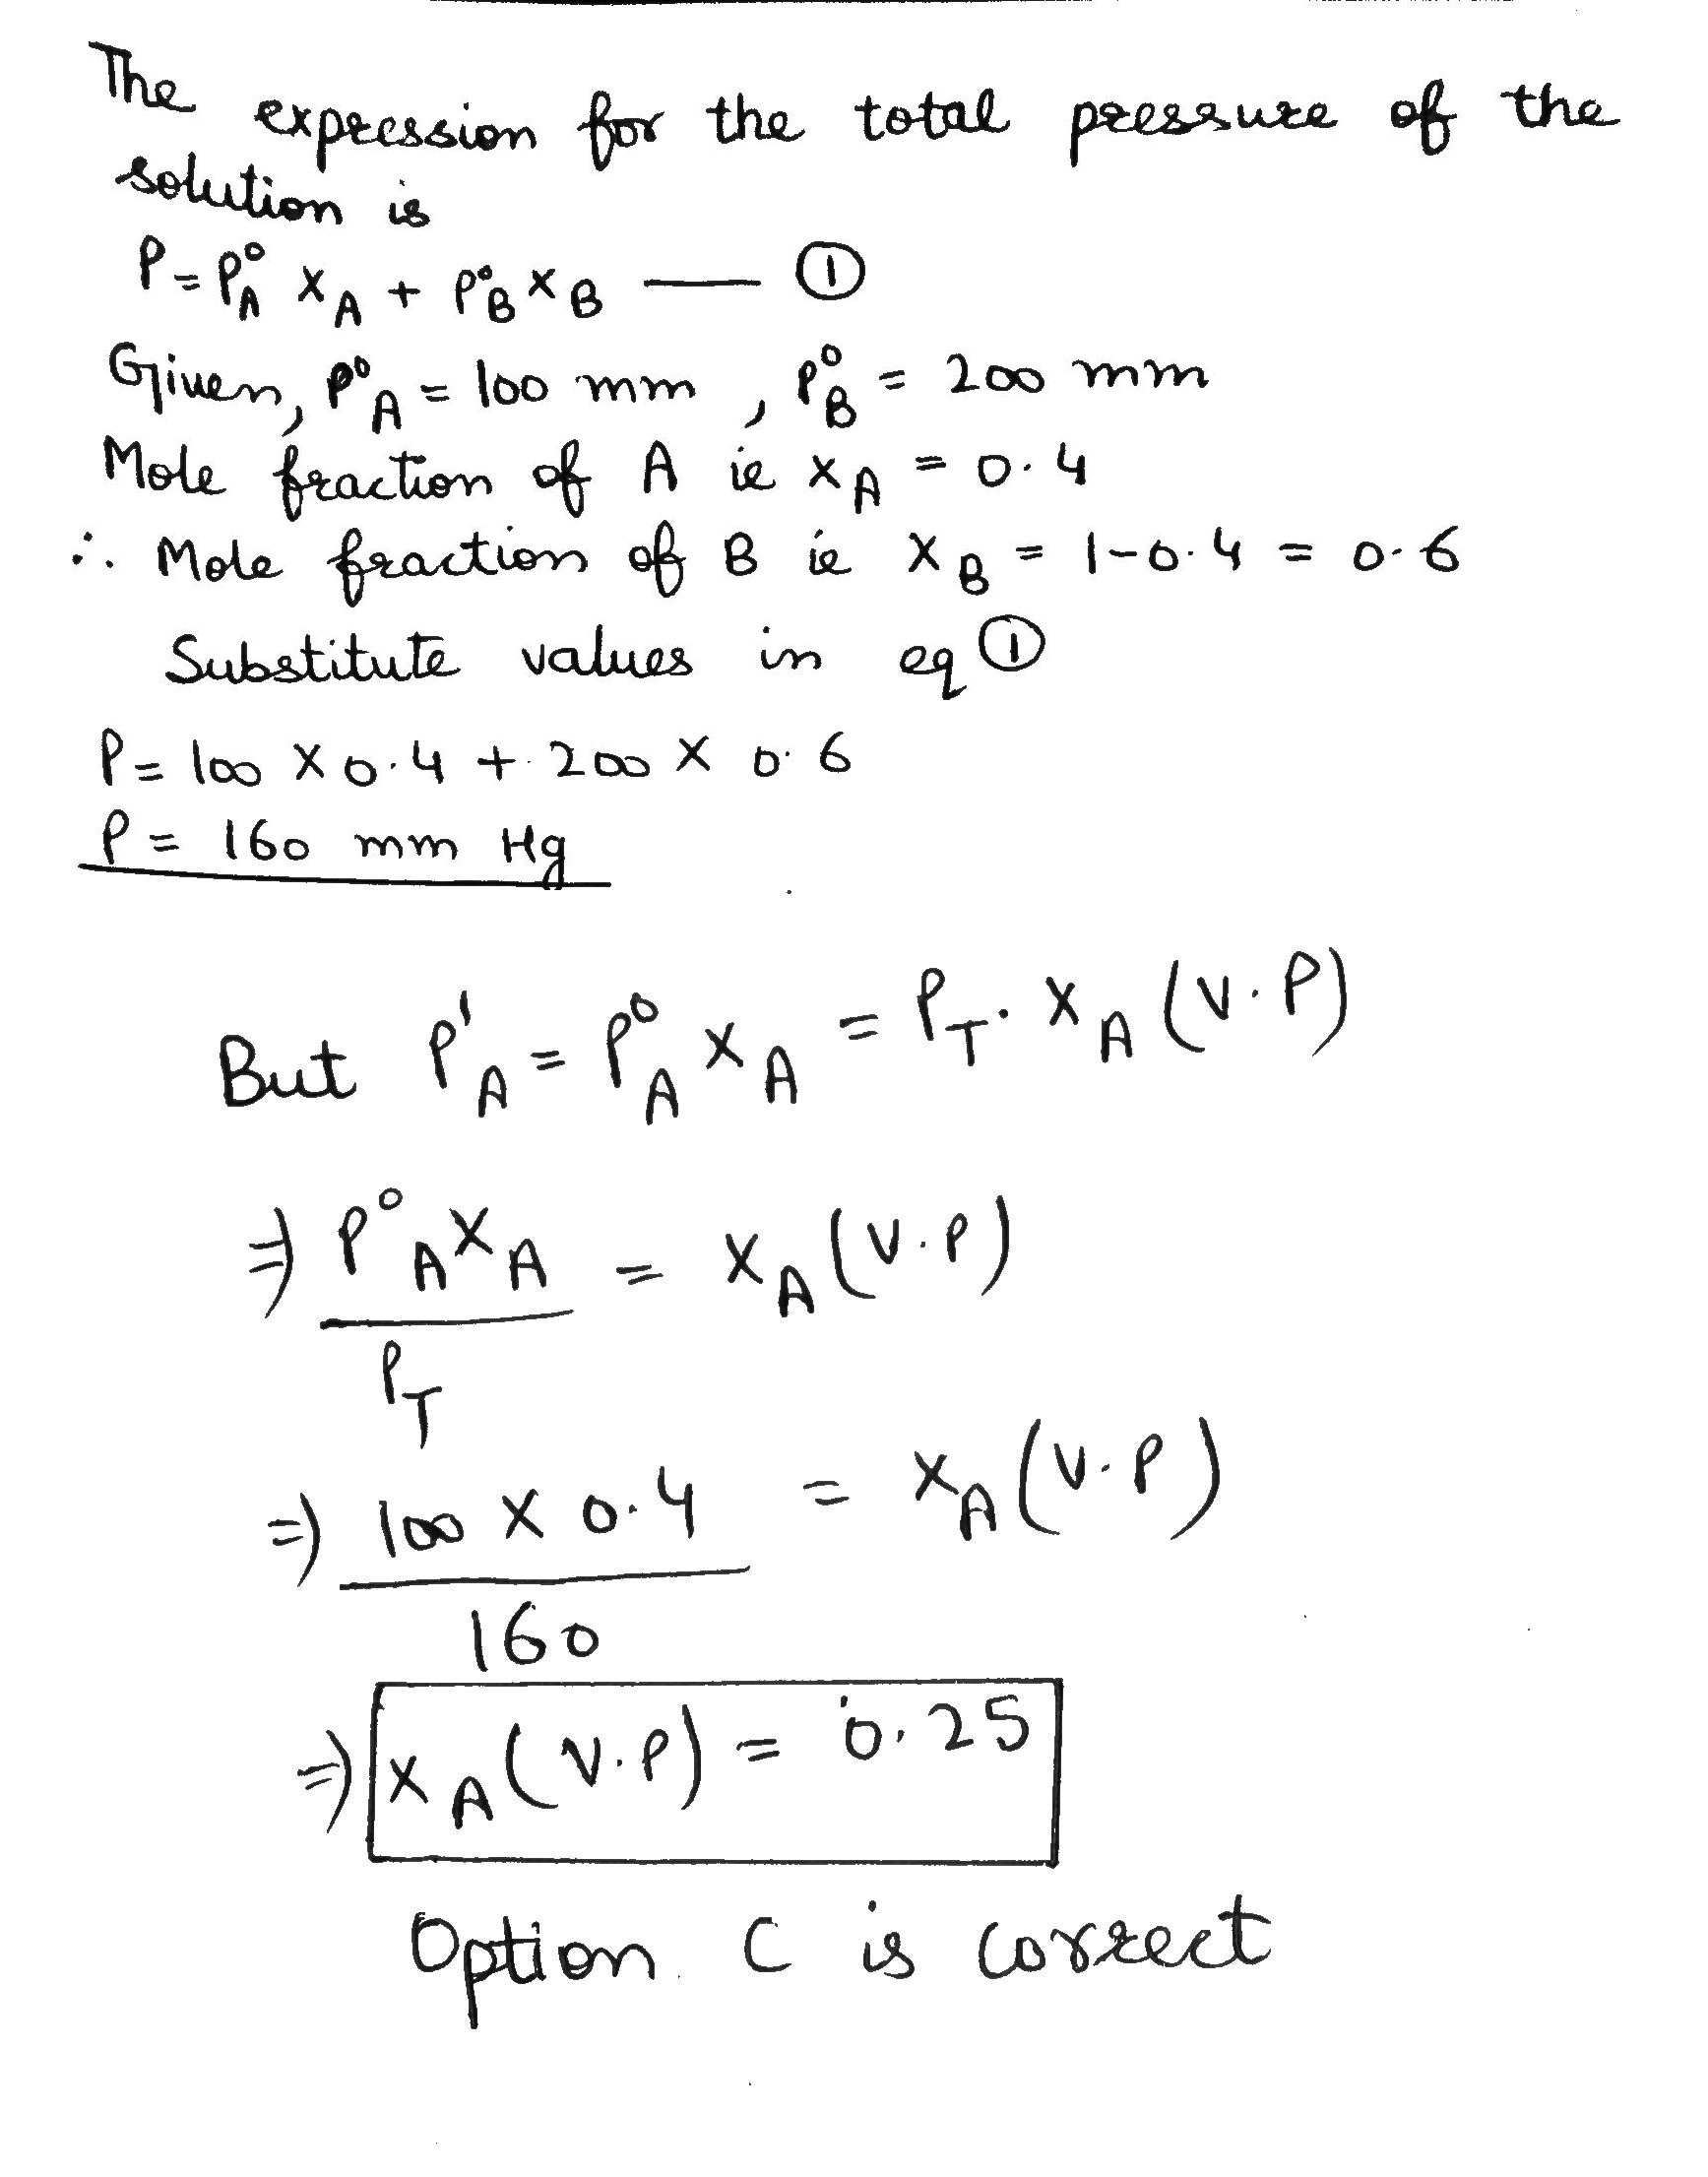 The expression for the total pressure of the
solution is
P = P°A XA + P°B XB —— ①
Given, P°A = 100 mm , P°B = 200 mm
Mole fraction of A ie XA = 0.4
∴ Mole fraction of B ie XB = 1-0.4 = 0.6
Substitute values in eq ①
P = 100 X 0.4 + 200 X 0.6
P = 160 mm Hg
But P'A = P°A XA = PT . XA (V.P)
⇒ P°A XA / PT = XA (V.P)
⇒ 100 X 0.4 / 160 = XA (V.P)
⇒ XA (V.P) = 0.25
Option C is correct